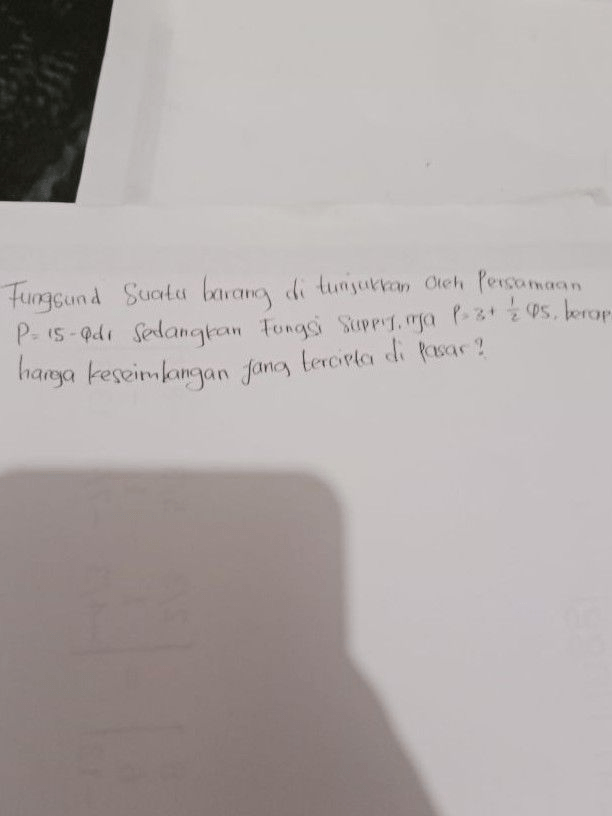 Fungsund Suatu barang di tunjukkan oleh Persamaan
P= 15 - Qd, Sedangkan Fungsi Supply, nya P= 3+ 1/2 QS. berap
harga keseimbangan yang tercipta di Pasar?